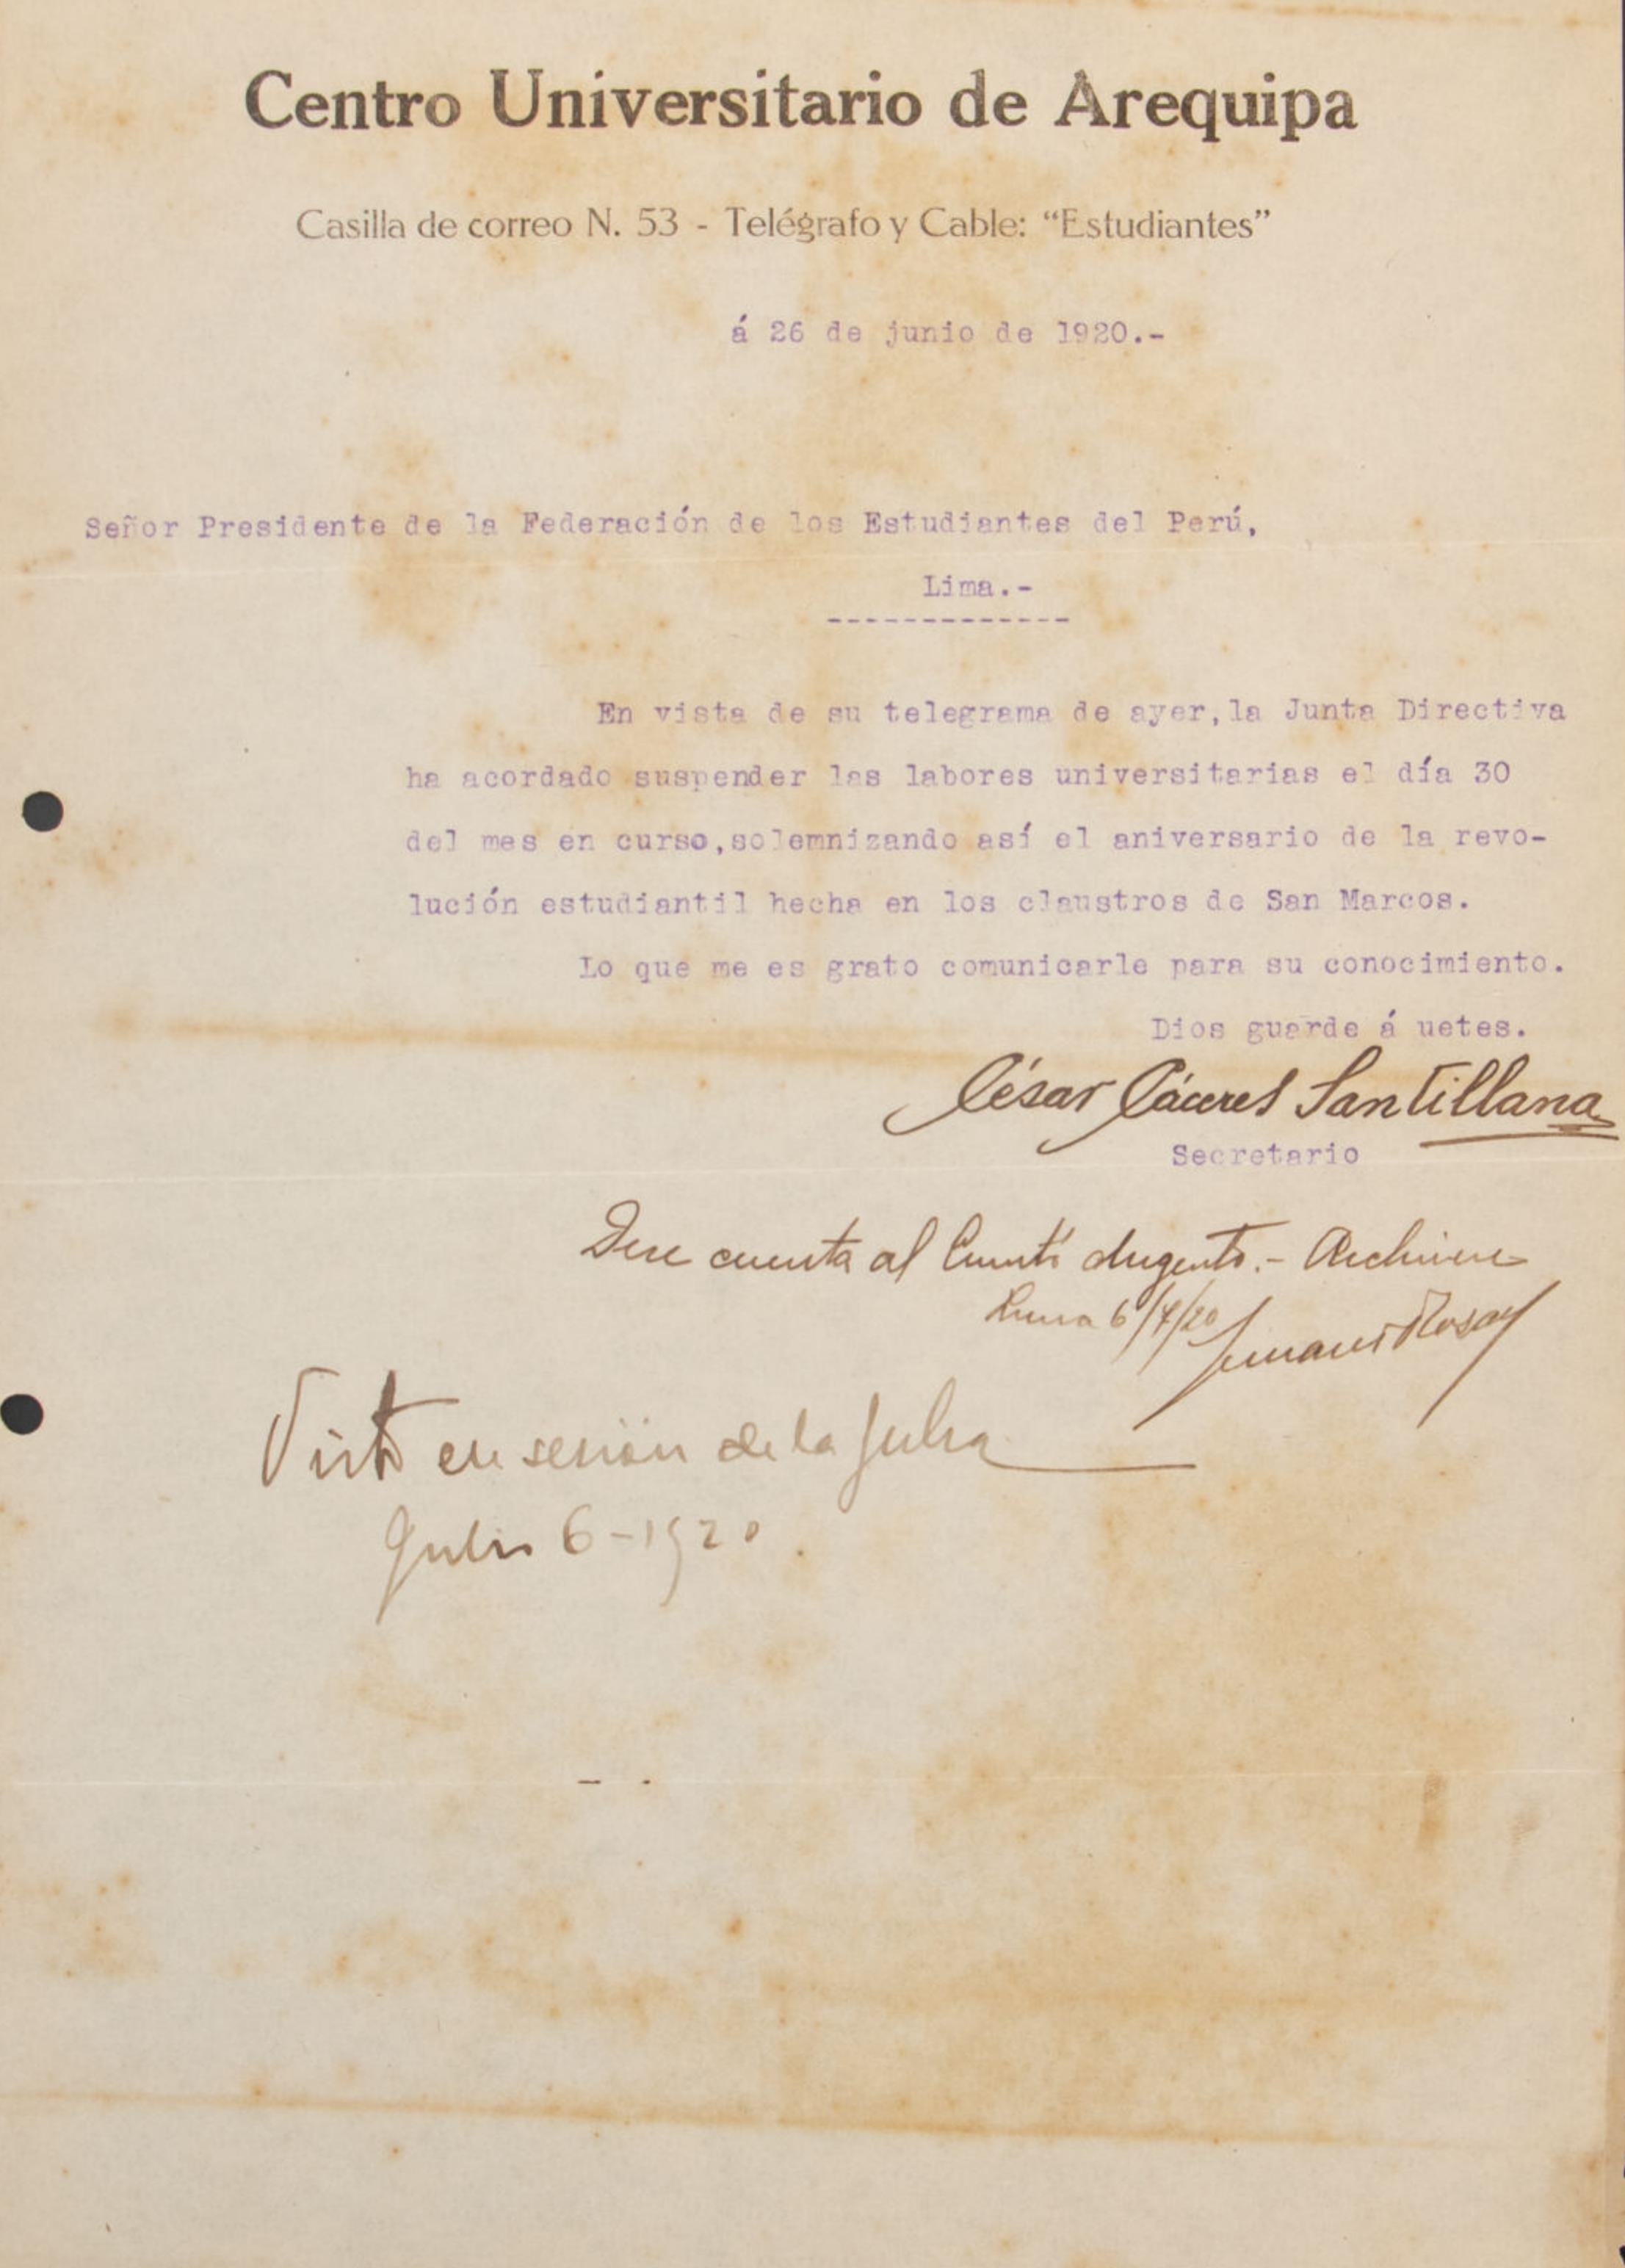 Centro Universitario de Arequipa
Casilla de correo N. 53 - Telégrafo y Cable: “Estudiantes”
á 26 de junio de 1920.-
Señor Presidente de la Federación de los Estudiantes del Perú,
Lima.-
-------------
En vista de su telegrama de ayer,la Junta Directiva
ha acordado suspender las labores universitarias el día 30
del mes en curso,solemnizando así el aniversario de la revo-
lución estudiantil hecha en los claustros de San Marcos.
Lo que me es grato comunicarle para su conocimiento.
Dios guarde á ustes.
César Cáceres Santillana
Secretario
Dese cuenta al Comité .- Archivese
Lima 6/7/20
Visto en sesión de la fecha
Julio 6-1920.